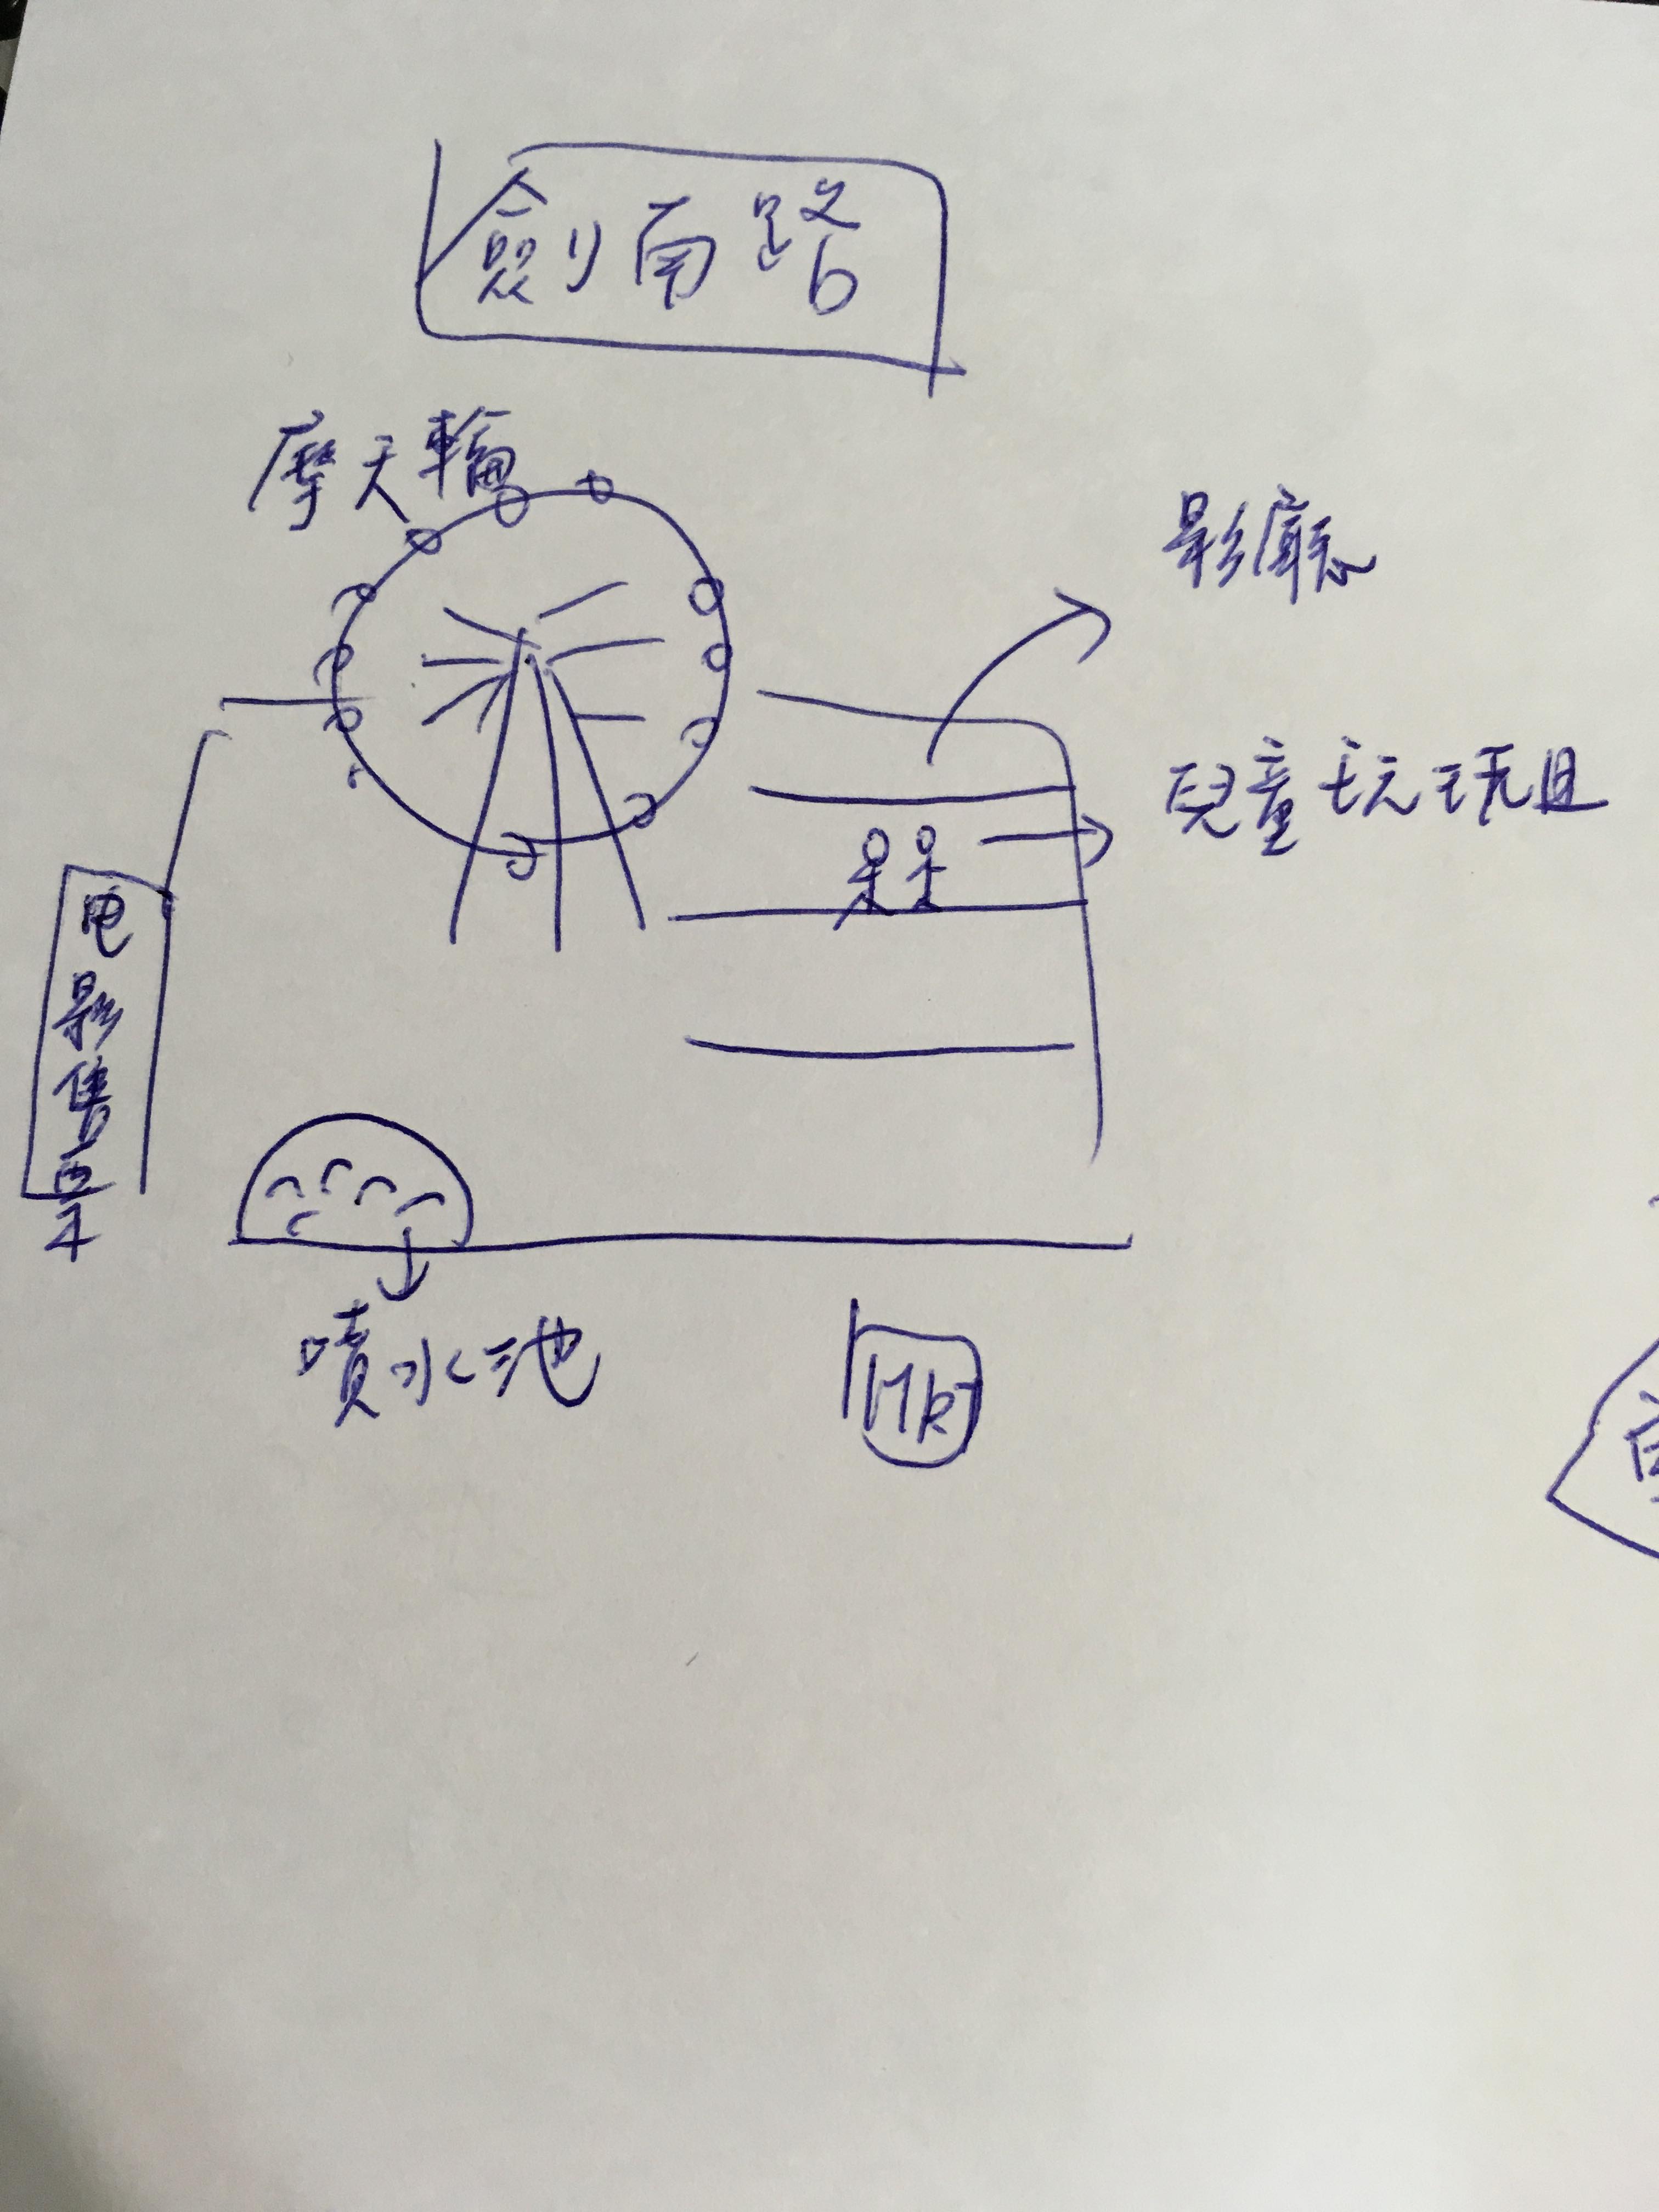 劍南路
摩天輪
影廳
兒童玩玩具
电影售票
噴水池